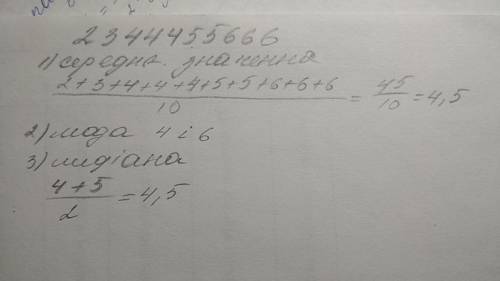 2 3 4 4 4 5 5 6 6 6
1) середнє значення
2+3+4+4+4+5+5+6+6+6 / 10 = 45/10 = 4,5
2) мода 4 і 6
3) медіана
4+5 / 2 = 4,5